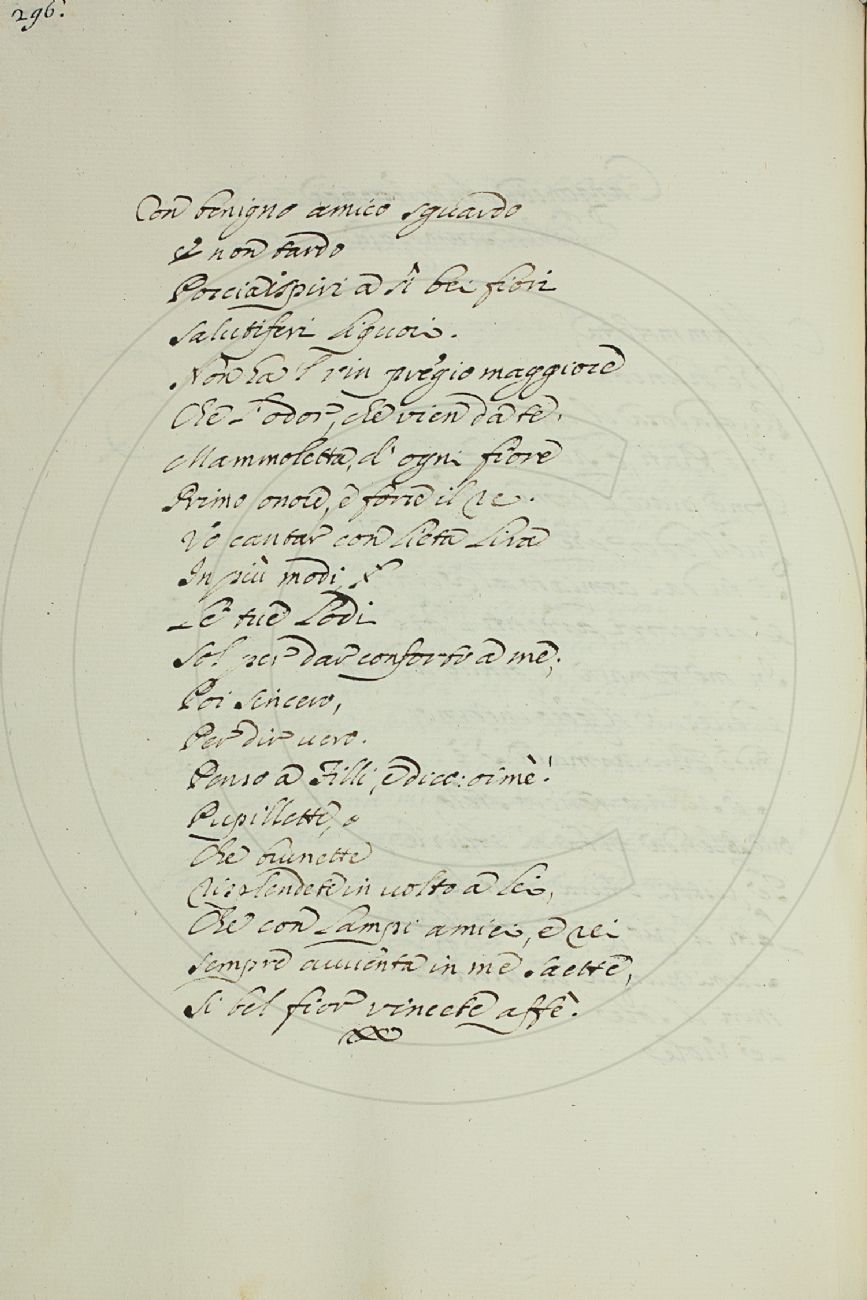 296.
Con benigno amico sguardo
E non tardo
Porcia ispiri a sì bei fiori
Salutiferi liquori.
Non ha l'rio pregio maggiore
Che l'odor, che vien da te.
Mammoletta, d'ogni fiore
Primo onore, e forse il re.
Vo cantar con lieta lira
In più modi
Le tue lodi
Sol per dar conforto a me;
Poi sincero,
Per dir vero.
Penso a Filli, e dico: oimè!
Pupillette,
Che brunette
Risplendete in volto a lei,
Che con lampi amici, e rei
Sempre avventa in me saette,
Sì bel fior vincete affè.